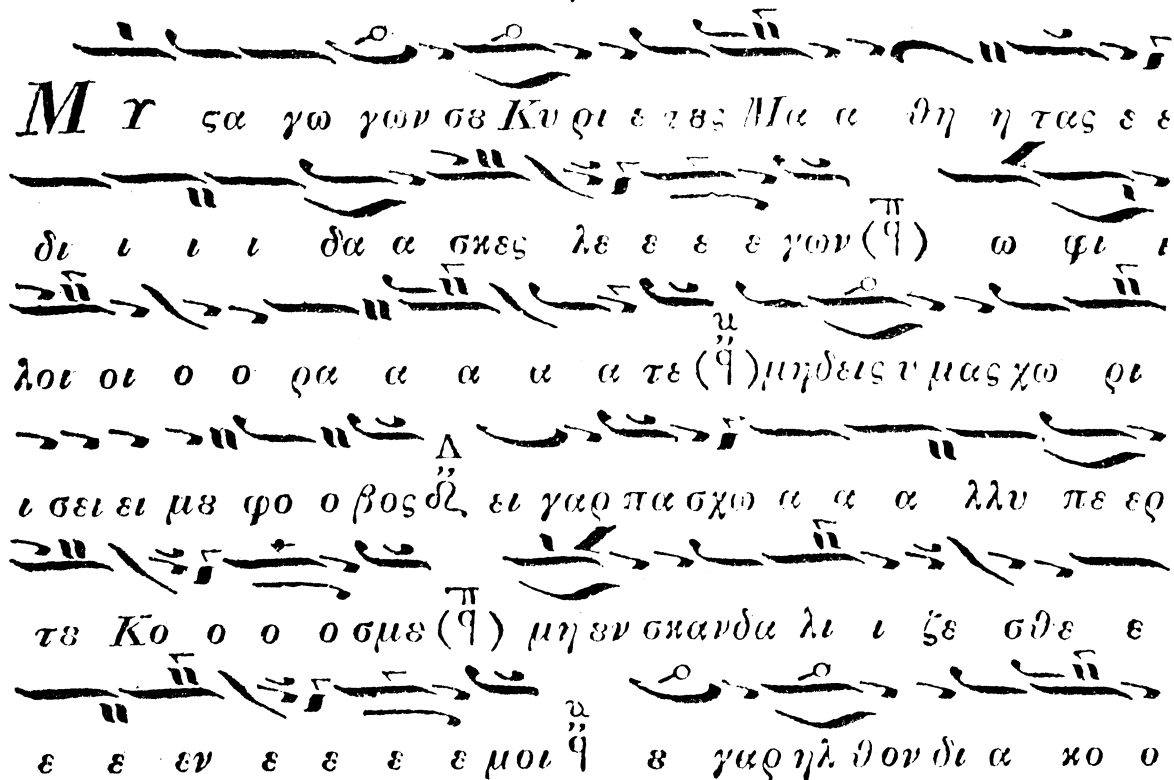 Μ Υ ςα γω γων σȣ Κυ ρι ε τȣς Μα α θη η τας ε ε
δι ι ι ι δα α σκες λε ε ε ε γων (π ϥ) ω φι ι
λοι οι ο ο ρα α α α α τε (ϥ) μηδεις υ μας χω ρι
ι σει ει μȣ φο ο βος Δ ει γαρ πα σχω α α α λλυ πε ερ
τȣ Κο ο ο ο σμȣ (π ϥ) μη ȣν σκανδα λι ι ζε σθε ε
ε ε εν ε ε ε ε μοι ϥ ȣ γαρ ηλ θον δι α κο ο